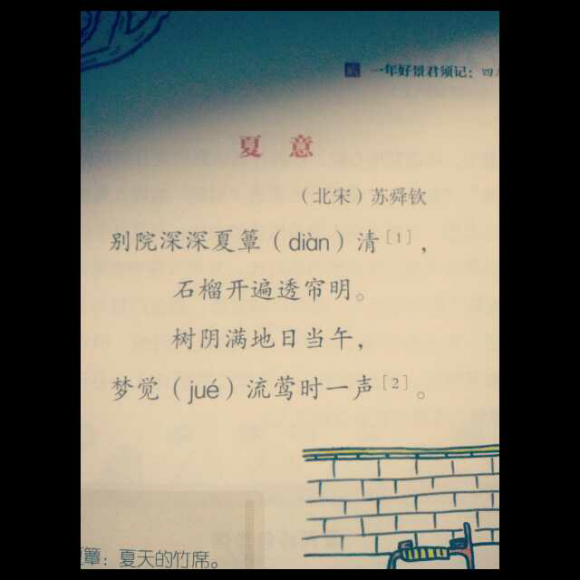 一年好景君须记：四
夏 意
（北宋）苏舜钦
别院深深夏簟（diàn）清［1］，
石榴开遍透帘明。
树阴满地日当午，
梦觉（jué）流莺时一声［2］。
簟：夏天的竹席。